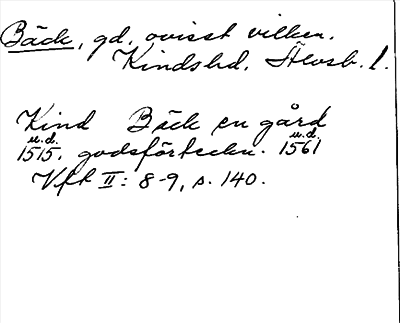 Bäck, gd, ovisst vilken.
Kindshd. Älvsb. l.
Kind Bäck en gård
u.d. u.d.
1515. godsförteckn. 1561
Vft II: 8-9, s. 140.